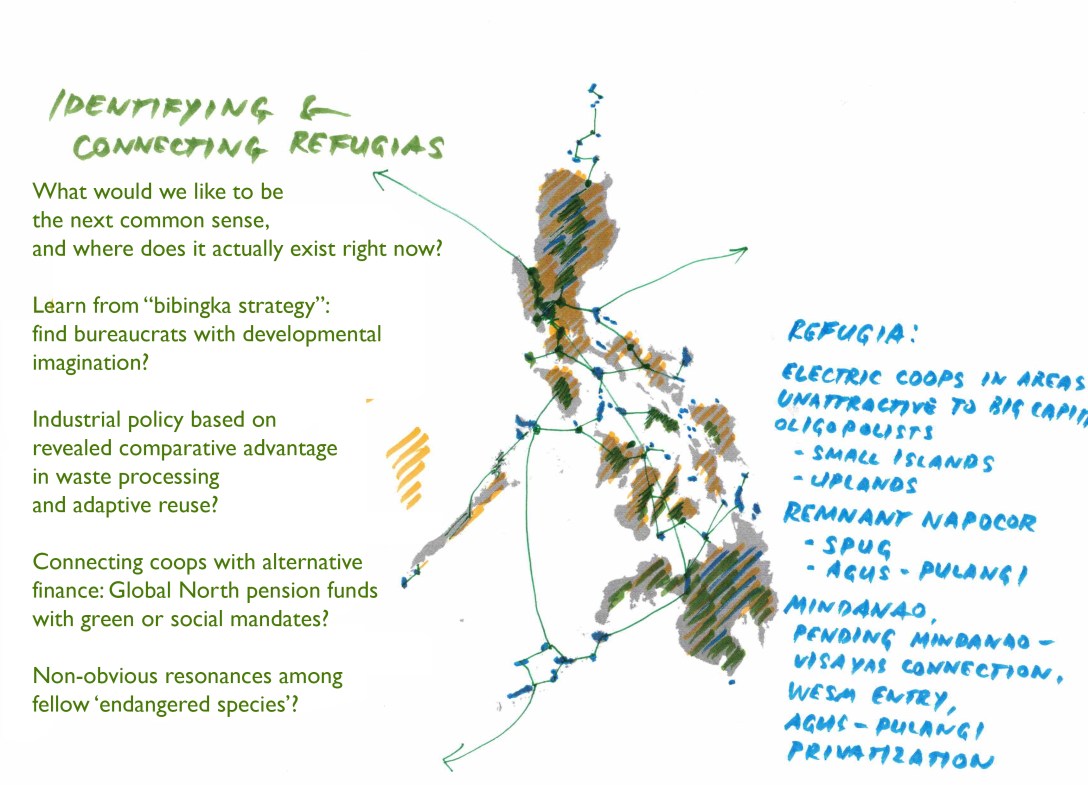 IDENTIFYING &
CONNECTING REFUGIAS
What would we like to be
the next common sense,
and where does it actually exist right now?
Learn from “bibingka strategy”:
find bureaucrats with developmental
imagination?
Industrial policy based on
revealed comparative advantage
in waste processing
and adaptive reuse?
Connecting coops with alternative
finance: Global North pension funds
with green or social mandates?
Non-obvious resonances among
fellow ‘endangered species’?
REFUGIA:
ELECTRIC COOPS IN AREAS
UNATTRACTIVE TO BIG CAPIT
OLIGOPOLISTS
- SMALL ISLANDS
- UPLANDS
REMNANT NAPOCOR
- SPUG
- AGUS - PULANGI
MINDANAO,
PENDING MINDANAO -
VISAYAS CONNECTION,
WESM ENTRY,
AGUS - PULANGI
PRIVATIZATION